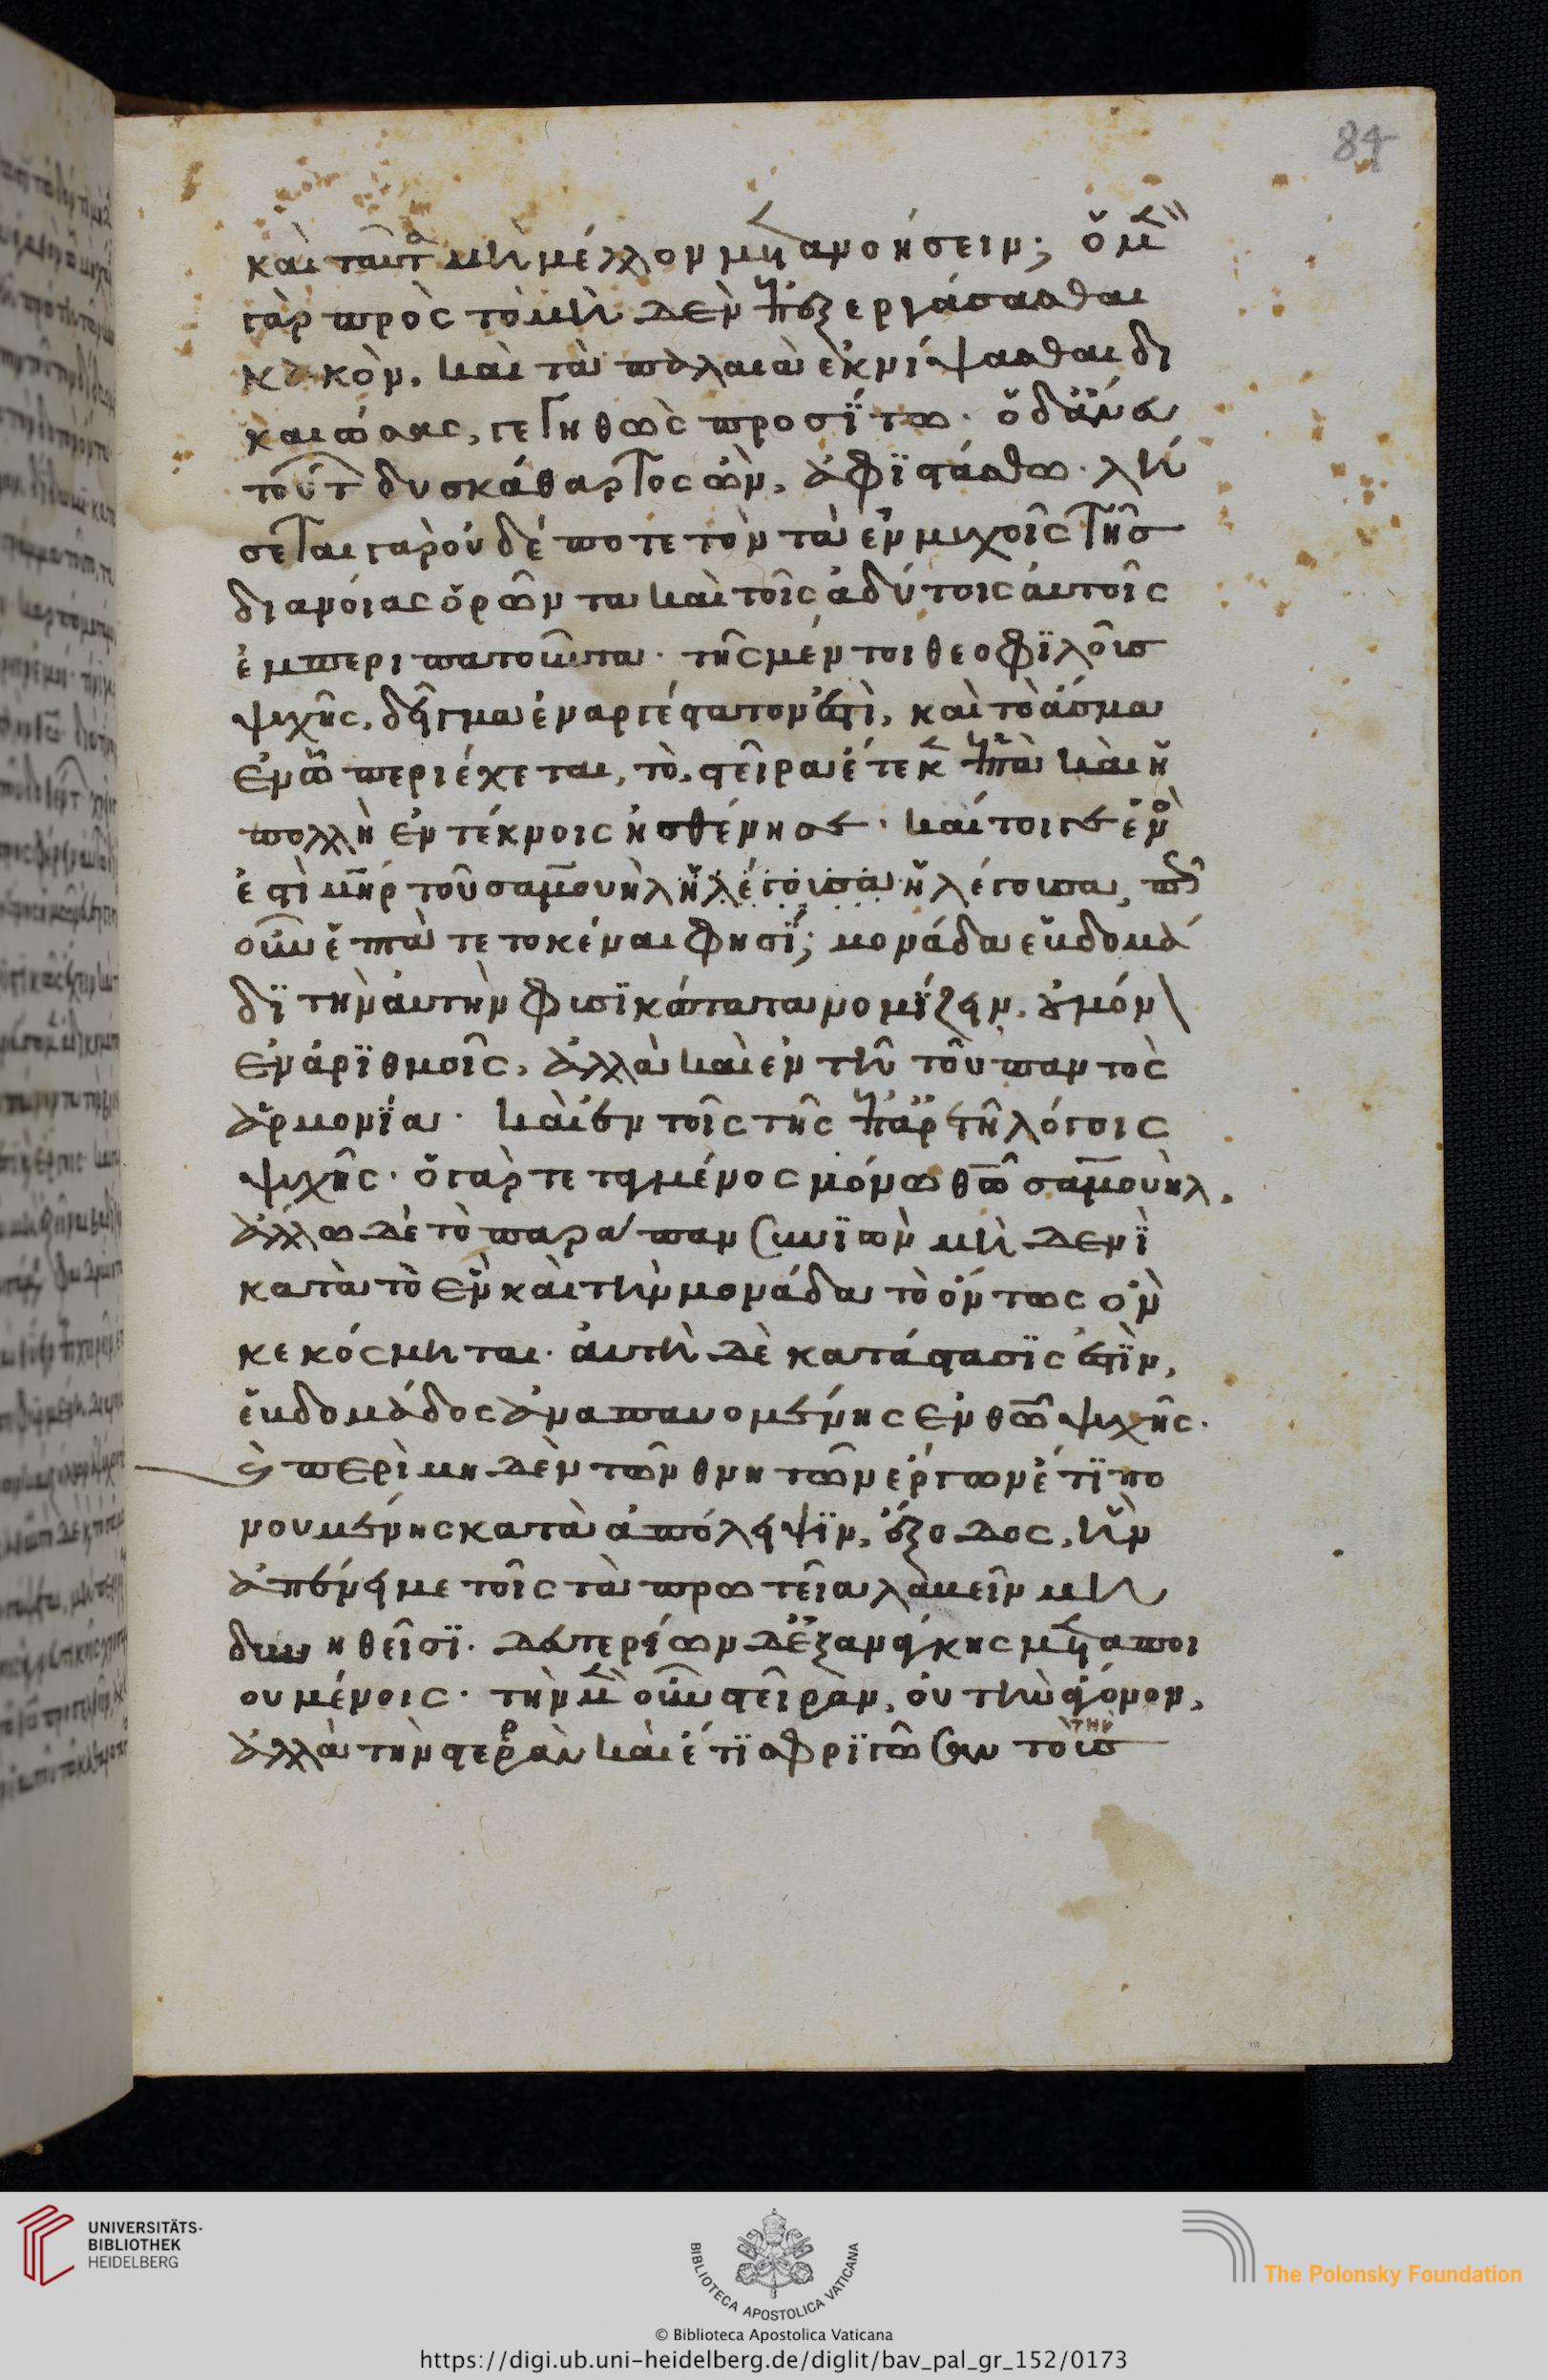 καὶ ταῦτα μὴ μέλλον μετανοήσειν; ὁ μὲν
γὰρ πρὸς τὸ μὴ δὲν ἐπεξεργάσασθαι
κακὸν, καὶ τὰ παλαιὰ ἐκνίψασθαι δι
καιώσας, γεγηθὼς προσΐτω. ὁ δ ἄνευ
τούτ δυσκάθαρτος ὢν, ἀφϊστάσθω. λή
σεται γὰρ οὐδέποτε τὸν τὰ ἐν μυχοῖς τῆς
διανοίας ὁρῶντα καὶ τοῖς ἀδύτοις αὐτοῖς
ἐμπεριπατοῦντα. τῆς μέν τοι θεοφϊλοῦς
ψυχῆς, δεῖγμα ἐναργέστατον ἐστὶ, καὶ τὸ ἄσμα
ἐν ᾧ περιέχεται, τὸ, στεῖρα ἔτεκεν ἑπτὰ καὶ ἡ
πολλὴ ἐν τέκνοις ἠσθένησε. καίτοιγε ἑνὸς
ἐστὶ μηρ τοῦ σαμουὴλ ἡ λέγουσα ἡ λέγουσα, πῶς
οὖν ἑπτὰ τετοκέναι φησΐ; μονάδα ἑβδομά
δϊ τὴν αὐτὴν φυσϊκώτατα νομΐζειν, οὐ μόν
ἐν ἀρϊθμοῖς, ἀλλὰ καὶ ἐν τῆ τοῦ παντὸς
ἁρμονΐα. καὶ ἐν τοῖς τῆς ἐπ' ἀρετῆ λόγοις
ψυχῆς. ὁ γὰρ τεταγμένος μόνω θῶ σαμουὴλ,
ἄλλω δὲ τὸ παράπαν συνϊὼν μὴ δενΐ
κατὰ τὸ ἓν καὶ τὴν μονάδα τὸ ὄντως ὂν
κεκόσμηται. αὐτὴ δὲ κατάστασϊς ἐστϊν,
ἑβδομάδος ἀναπαυομένης ἐν θῶ ψυχῆς.
καὶ περὶ μη δὲν τῶν θνητῶν ἔργων ἔτϊ πο
νουμένης κατὰ ἀπόλειψϊν, ἕξοδος, ἣν
ἀπένειμε τοῖς τὰ πρωτεῖα λαβεῖν μὴ
δυνηθεῖσϊ. δευτερείων δὲ ἐξ ἀνάγκης μεταποι
ουμένοις. τὴν μὲν οὖν στεῖραν, οὐ τὴν στόνον,
ἀλλὰ τὴν στερρὰν καὶ ἔτϊ σφρϊγῶσαν τὴν τοῖς
84
UNIVERSITÄTS-
BIBLIOTHEK
HEIDELBERG
BIBLIOTECA APOSTOLICA VATICANA
The Polonsky Foundation
© Biblioteca Apostolica Vaticana
https://digi.ub.uni-heidelberg.de/diglit/bav_pal_gr_152/0173